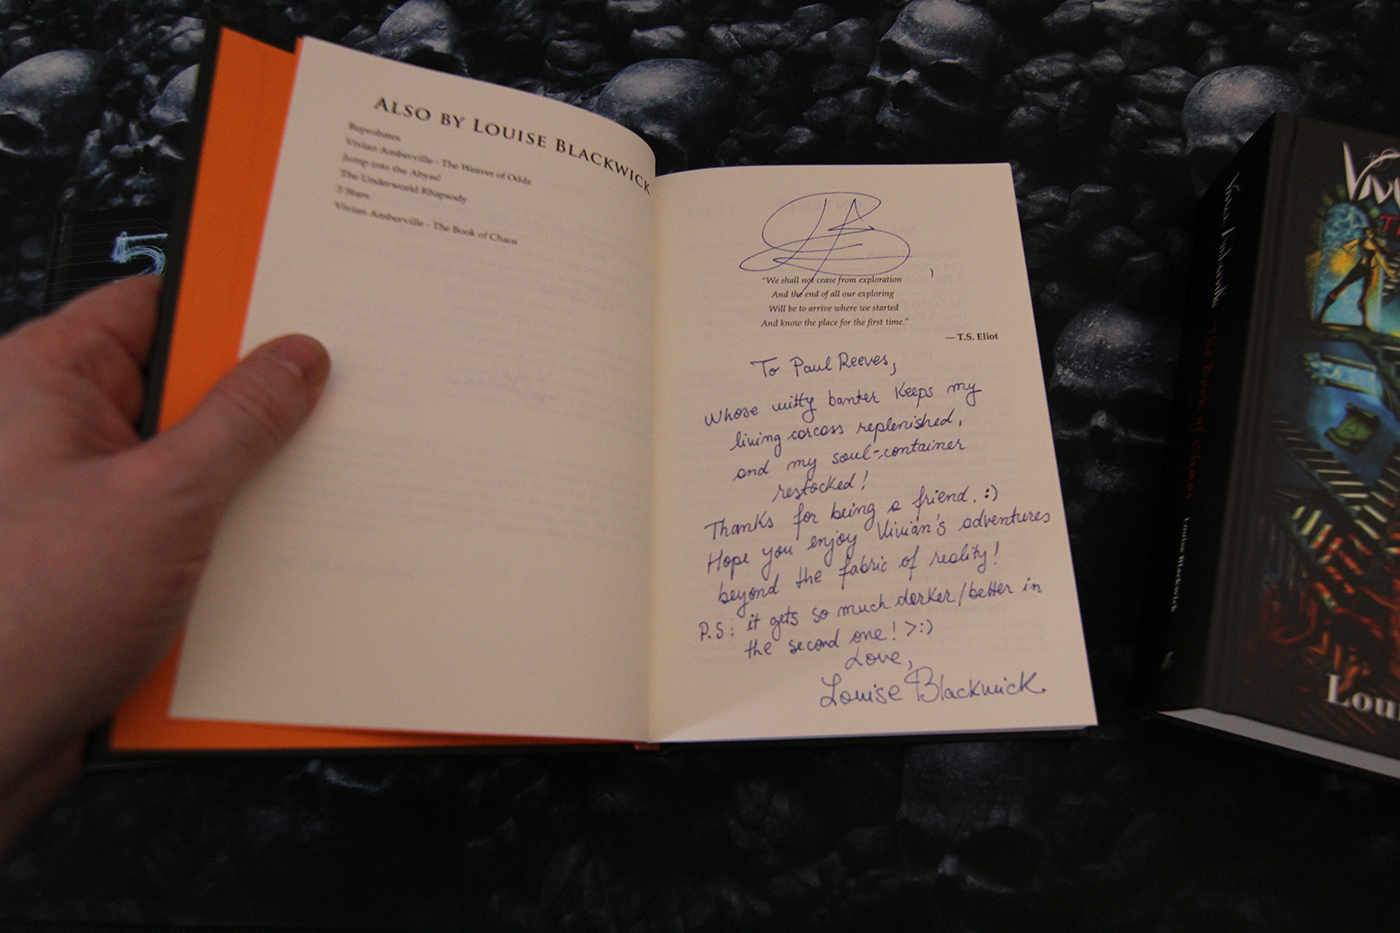 ALSO BY LOUISE BLACKWICK
Reprobates
Vivian Amberville - The Weaver of Odds
Jump into the Abyss!
The Underworld Rhapsody
5 Stars
Vivian Amberville - The Book of Chaos
5
"We shall not cease from exploration
And the end of all our exploring
Will be to arrive where we started
And know the place for the first time."
— T.S. Eliot
To Paul Reeves,
Whose witty banter keeps my
living carcass replenished,
and my soul-container
restocked!
Thanks for being a friend. :)
Hope you enjoy Vivian's adventures
beyond the fabric of reality!
P.S: it gets so much darker/better in
the second one! >:)
Love,
Louise Blackwick
The Book of Chaos
Louise Blackwick
Lou